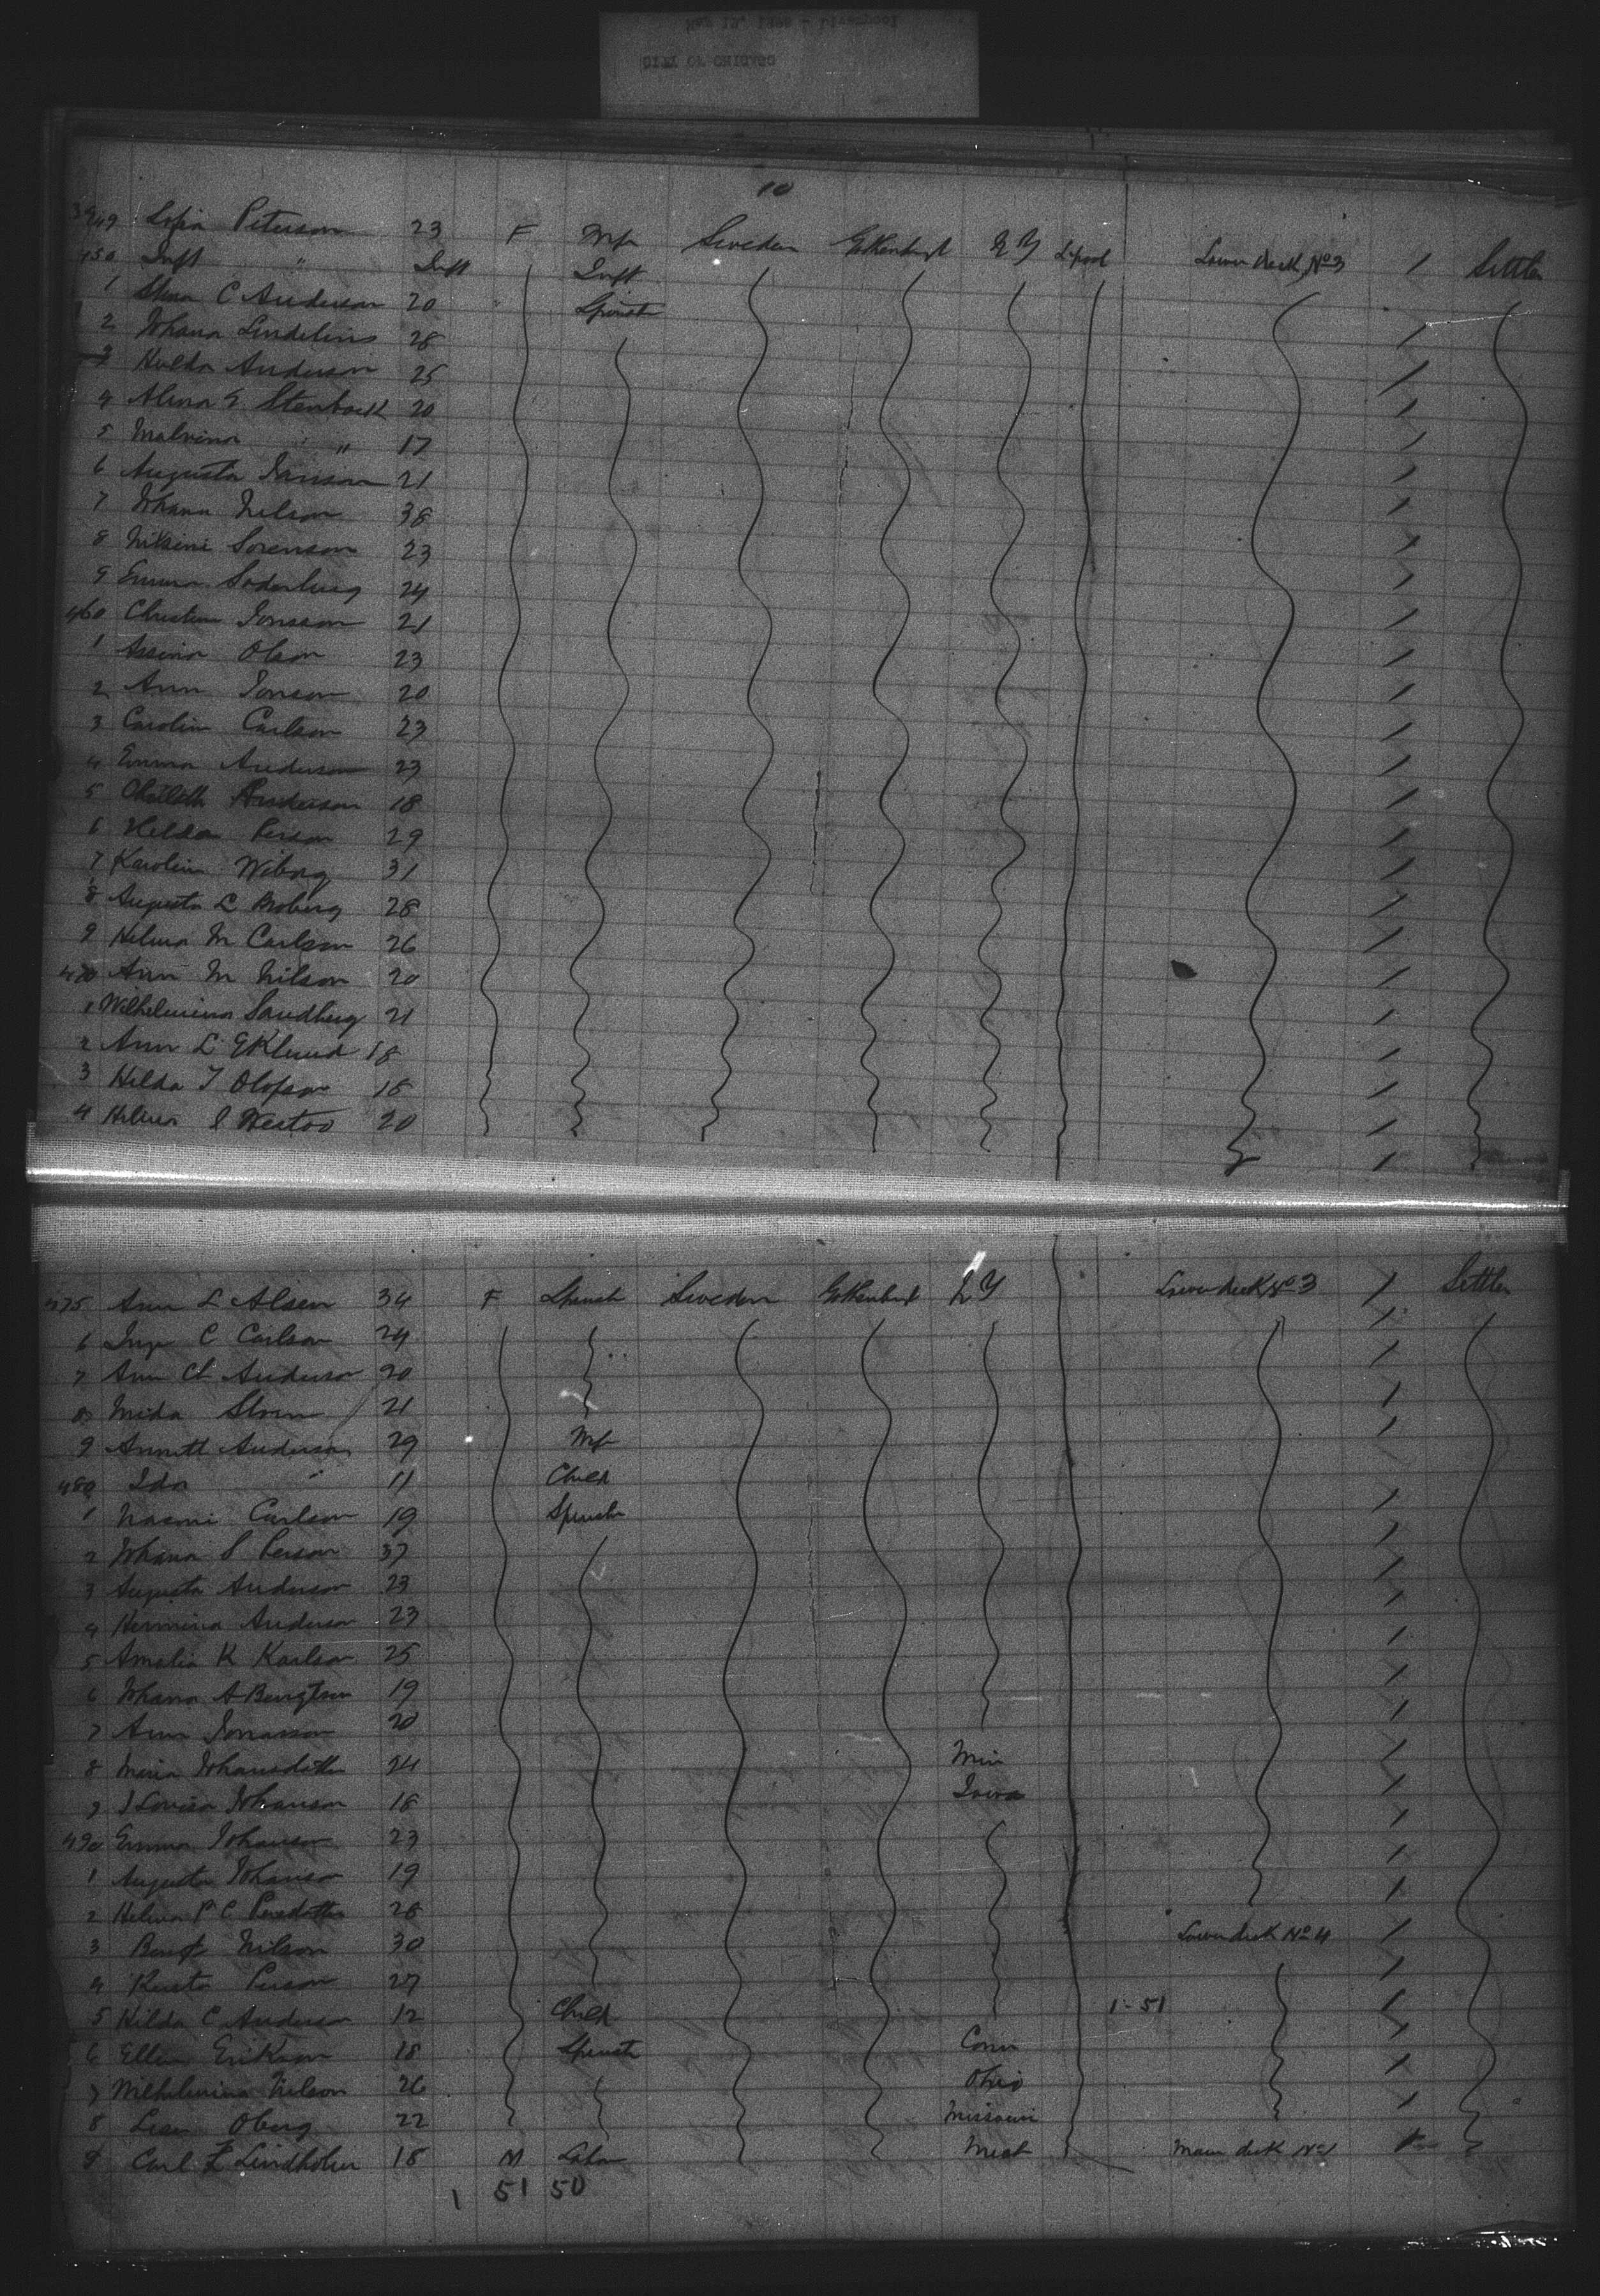 CITY OF CHICAGO
10
449 Sofia Peterson 23 F Wife Sweden Gothenburg N Y L'pool Lower deck No 3 / Settler
450 Inft " Inft Inft
1 C Anderson 20 Spinst
2 Johana Lindelius 28 /
3 Hulda Anderson 25 /
4 Alma E Stenbock 20 /
5 Malvina " " 17 /
6 Augusta Janson 21 /
7 Johana Nelson 38 /
8 Nilsine Sorenson 23 /
9 Emma Soderberg 24 /
460 Christin Jonsson 21 /
1 Olson 23 /
2 Ann Jonson 20 /
3 Carolin Carlson 23 /
4 Emma Anderson 23 /
5 Charloth Anderson 18 /
6 Hilda Person 29 /
7 Karolin Wiborg 31 /
8 Augusta L Broberg 28 /
9 Hilma M Carlson 26 /
470 Ann M Nilson 20 /
1 Wilhelmina Sandberg 21 /
2 Ann L Eklund 18 /
3 Hilda T Olofson 18 /
4 Hilma 20 /
475 Ann L Alsen 34 F Spinst Sweden Gothenburg N Y Lower deck No 3 / Settler
6 Inga C Carlson 24 /
7 Ann Ch Anderson 20 /
8 Mida Storm 21 /
9 Annett Anderson 29 Wife /
480 Ida " 11 Child
1 Naomi Carlson 19 Spinst /
2 Johana S Person 37 /
3 Augusta Anderson 23 /
4 Hermina Anderson 23 /
5 Amalia K Karlson 25 /
6 Johana A Bengtson 19 /
7 Ann Jonasson 20 /
8 Maria Johansdotter 24 Min /
9 I Lovisa Johanson 18 Iowa /
490 Emma Johanson 23 /
1 Augusta Johanson 19 /
2 Hilma P C 28 /
3 Bengt Nilson 30 Lower deck No 4 /
4 Kersta Person 27 /
5 Hilda C Anderson 12 Child 1-51 /
6 Ellen Erikson 18 Spinst Conn /
7 Wilhelmina Nilson 26 Ohio /
8 Oberg 22 Missouri /
9 Carl F Lindholm 18 M Labr Mich Main deck No 1
1 51 50